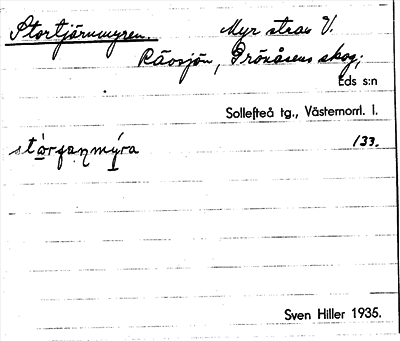 Stortjärnmyren. Myr strax V.
Råosjön, Grönåsens skog,
Eds s:n
Sollefteå tg., Västernorrl. l.
stòrʃaɳmýra 133.
Sven Hiller 1935.